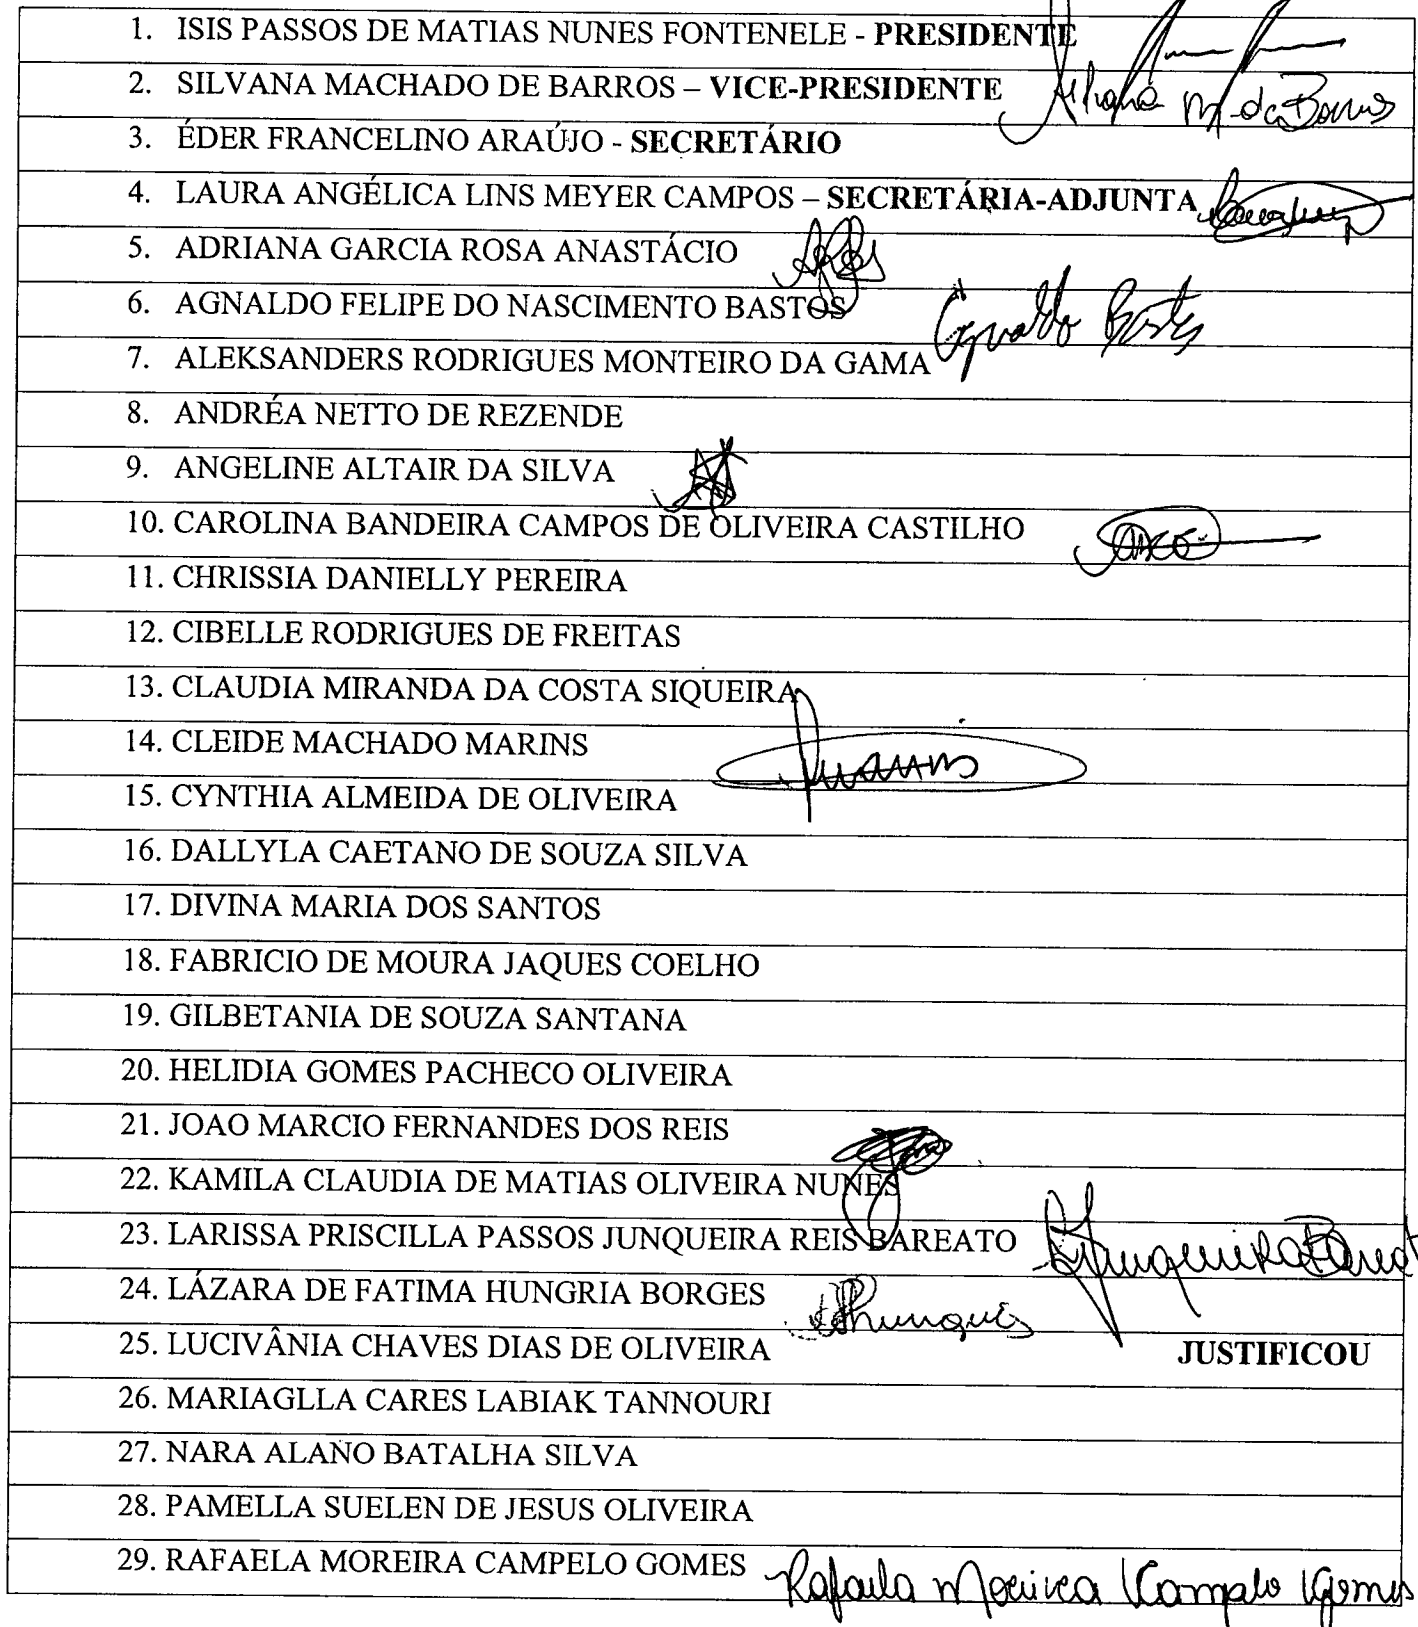 1. ISIS PASSOS DE MATIAS NUNES FONTENELE - PRESIDENTE
2. SILVANA MACHADO DE BARROS – VICE-PRESIDENTE Silvana M. de Barros
3. ÉDER FRANCELINO ARAÚJO - SECRETÁRIO
4. LAURA ANGÉLICA LINS MEYER CAMPOS – SECRETÁRIA-ADJUNTA
5. ADRIANA GARCIA ROSA ANASTÁCIO
6. AGNALDO FELIPE DO NASCIMENTO BASTOS Agnaldo Bastos
7. ALEKSANDERS RODRIGUES MONTEIRO DA GAMA
8. ANDRÉA NETTO DE REZENDE
9. ANGELINE ALTAIR DA SILVA
10. CAROLINA BANDEIRA CAMPOS DE OLIVEIRA CASTILHO
11. CHRISSIA DANIELLY PEREIRA
12. CIBELLE RODRIGUES DE FREITAS
13. CLAUDIA MIRANDA DA COSTA SIQUEIRA
14. CLEIDE MACHADO MARINS
15. CYNTHIA ALMEIDA DE OLIVEIRA
16. DALLYLA CAETANO DE SOUZA SILVA
17. DIVINA MARIA DOS SANTOS
18. FABRICIO DE MOURA JAQUES COELHO
19. GILBETANIA DE SOUZA SANTANA
20. HELIDIA GOMES PACHECO OLIVEIRA
21. JOAO MARCIO FERNANDES DOS REIS
22. KAMILA CLAUDIA DE MATIAS OLIVEIRA NUNES
23. LARISSA PRISCILLA PASSOS JUNQUEIRA REIS BAREATO
24. LÁZARA DE FATIMA HUNGRIA BORGES
25. LUCIVÂNIA CHAVES DIAS DE OLIVEIRA JUSTIFICOU
26. MARIAGLLA CARES LABIAK TANNOURI
27. NARA ALANO BATALHA SILVA
28. PAMELLA SUELEN DE JESUS OLIVEIRA
29. RAFAELA MOREIRA CAMPELO GOMES Rafaela Moreira Campelo Gomes